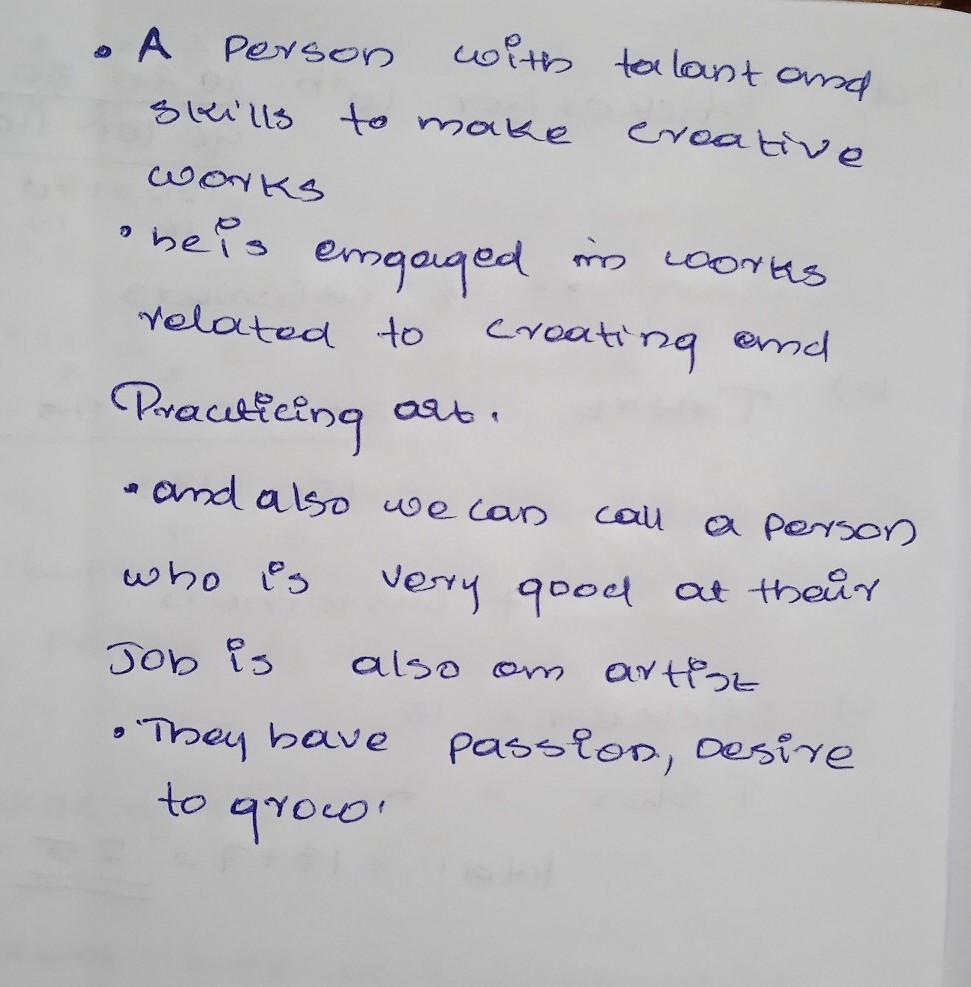 • A Person with talant and
skills to make creative
works
• he is engaged in works
related to creating and
Practicing art.
• and also we can call a person
who is very good at their
Job is also an artist
• They have passion, Desire
to grow.